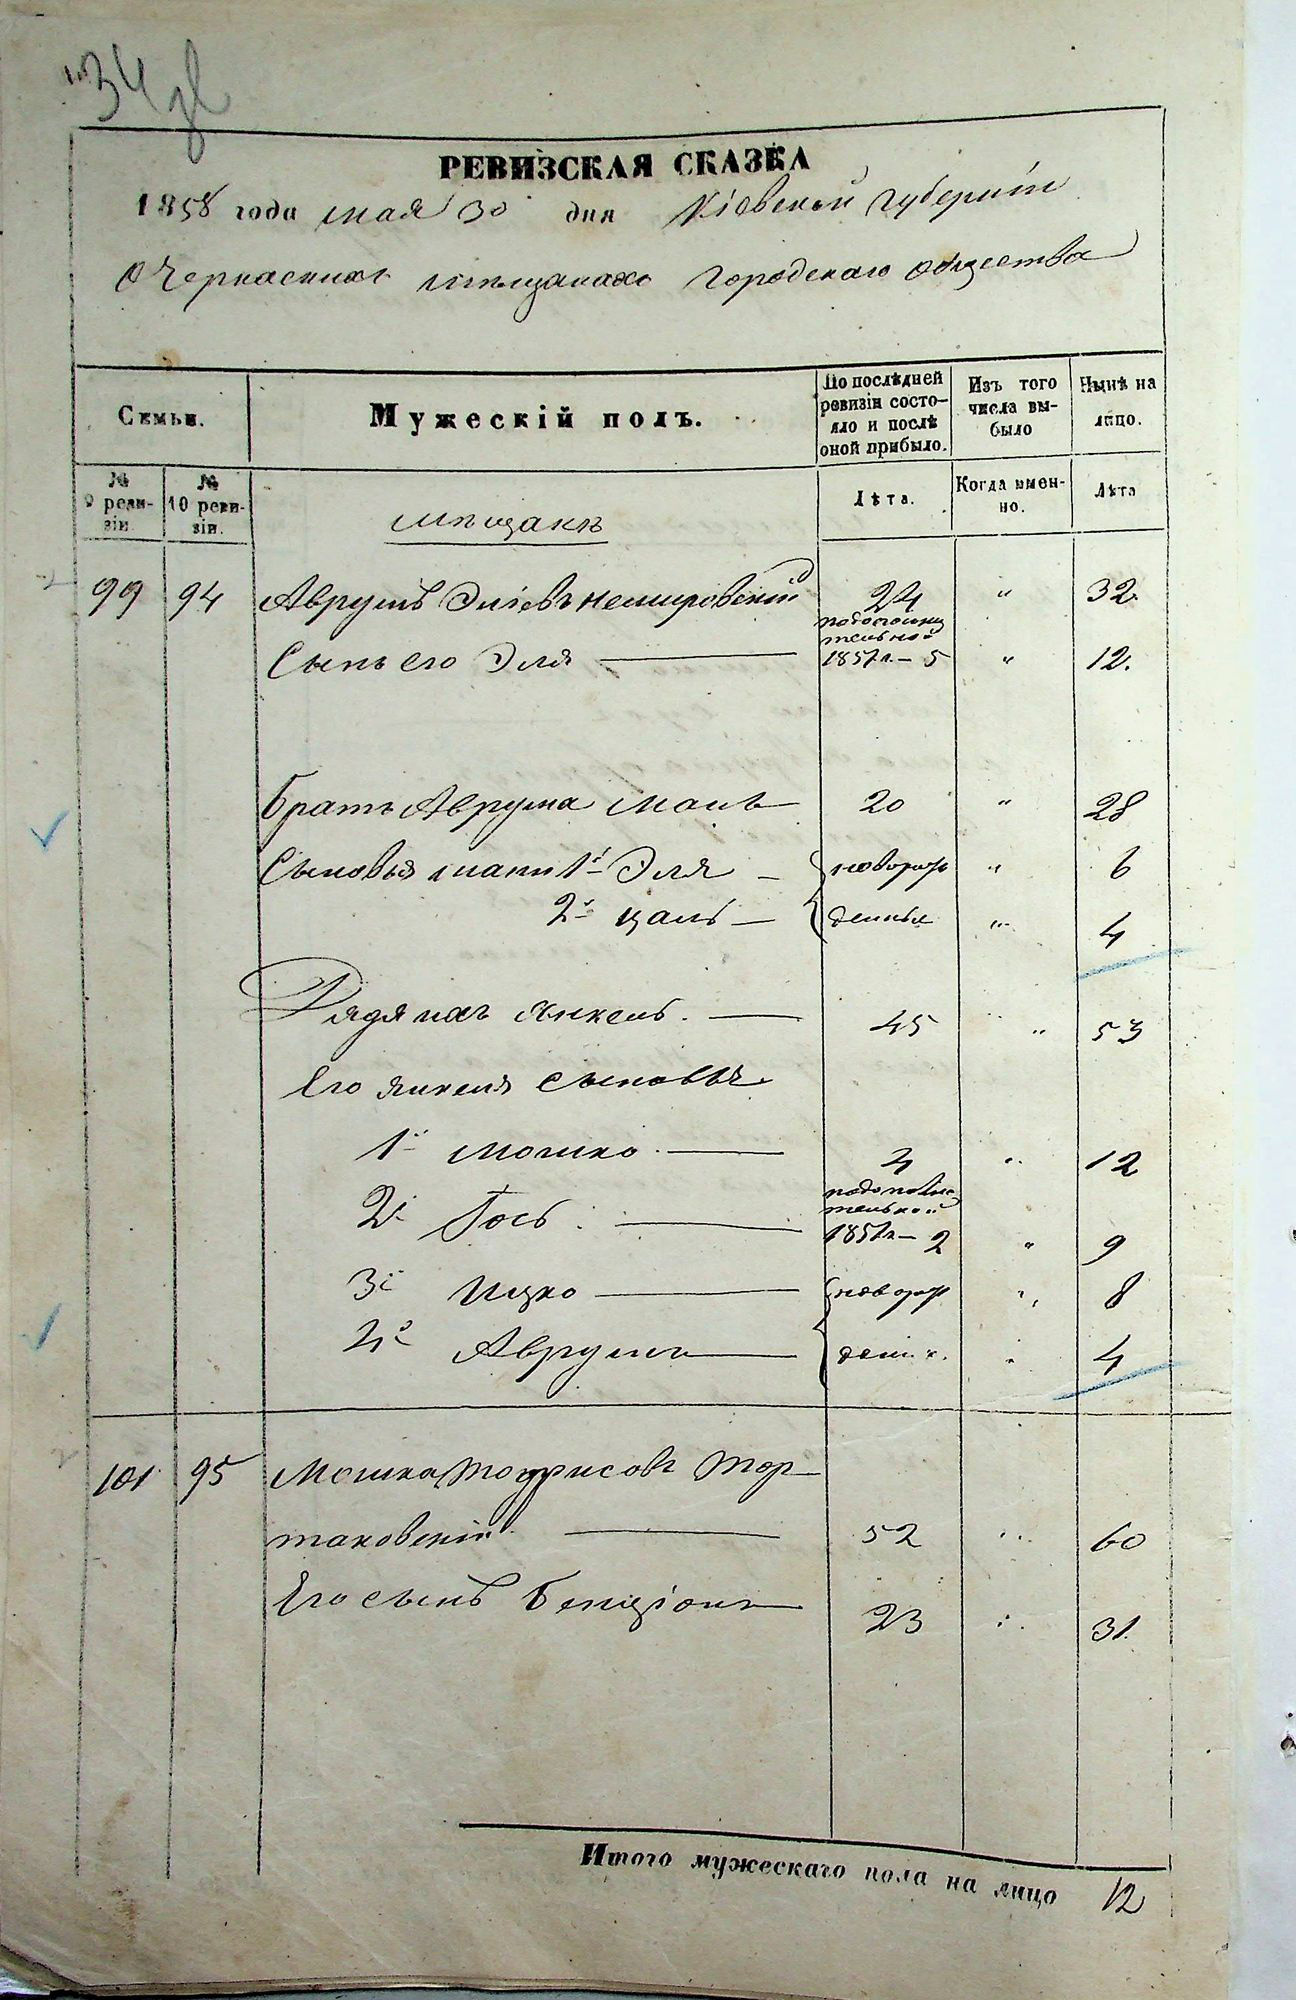 34
РЕВИЗСКАЯ СКАЗКА
1858 года мая 30 дня Кіевской Губерніи
О Черкаскихъ мѣщанахъ Городскаго общества
Семьи.
Мужескій полъ.
По послѣдней ревизіи состояло и послѣ оной прибыло.
Изъ того числа выбыло
Нынѣ на лицо.
№ 9 ревизіи
№ 10 ревизіи.
мѣщане
Лѣта.
Когда именно.
Лѣта
99 94 Аврумъ Эліевъ Немировскій 24 " 32.
подополнительной
Сынъ его Эля — 1851 г. — 5 " 12.
Братъ Аврума Манъ 20 " 28
Сыновья Мани 1й Эля — новорож " 6
2й Цаль — денные " 4
Дядя ихъ Янкель. — 45 " 53
Его Янкеля сыновья
1й Мошко — 4 " 12
подополнительной
2й Іось — 1851 г. — 2 " 9
3й Ицко — новорож " 8
4й Аврумъ — ден. " 4
101 95 Мошка
таковскій — 52 " 60
Его сынъ Бенціонъ — 23 " 31.
Итого мужескаго пола на лицо 12